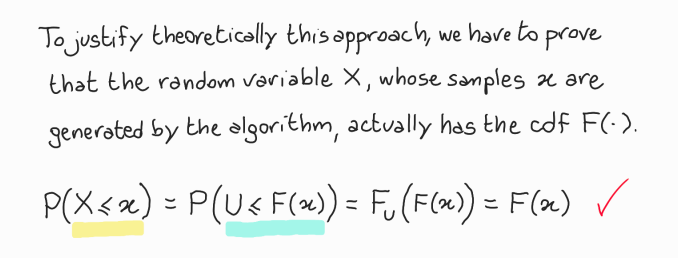 To justify theoretically this approach, we have to prove
that the random variable X, whose samples x are
generated by the algorithm, actually has the cdf F(·).
P(X ⩽ x) = P(U ⩽ F(x)) = F_U(F(x)) = F(x) ✓